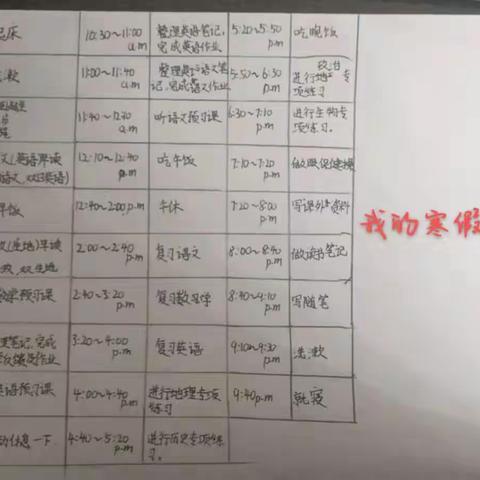 起床
10:30~11:00 a.m
整理英语笔记,
完成英语作业
5:20~5:50 p.m
吃晚饭
洗漱
11:00~11:40 a.m
整理语文笔
记,完成语文作业
5:50~6:30 p.m
进行地理专
项练习
11:40~12:10 a.m
听语文预习课
6:30~7:10 p.m
进行生物专
项练习。
英语早读
语文, 双日英语)
12:10~12:40 p.m
吃午饭
7:10~7:20 p.m
做眼保健操
早饭
12:40~2:00 p.m
午休
7:20~8:00 p.m
写课外资料
早读
2:00~2:40 p.m
复习语文
8:00~8:40 p.m
做读书笔记
数学预习课
2:40~3:20 p.m
复习数学
8:40~9:10 p.m
写随笔
笔记,完成
作业
3:20~4:00 p.m
复习英语
9:10~9:30 p.m
洗漱
英语预习课
4:00~4:40 p.m
进行地理专项
练习
9:40p.m
就寝
休息一下
4:40~5:20 p.m
进行历史专项练
习。
我的寒假